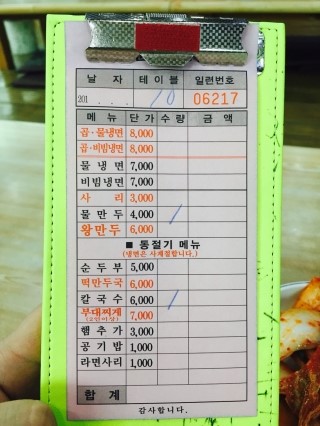 날 자 테 이 블 일련번호
201 . . . . 10 06217
메 뉴 단 가 수 량 금 액
곱·물냉면 8,000
곱·비빔냉면 8,000
물 냉 면 7,000
비빔냉면 7,000
사 리 3,000
물 만 두 4,000
왕만두 6,000
■ 동절기 메뉴
(냉면은 사계절합니다.)
순 두 부 5,000
떡만두국 6,000
칼 국 수 6,000
부대찌게 7,000
(2인이상)
햄 추 가 3,000
공 기 밥 1,000
라면사리 1,000
합 계
감사합니다.